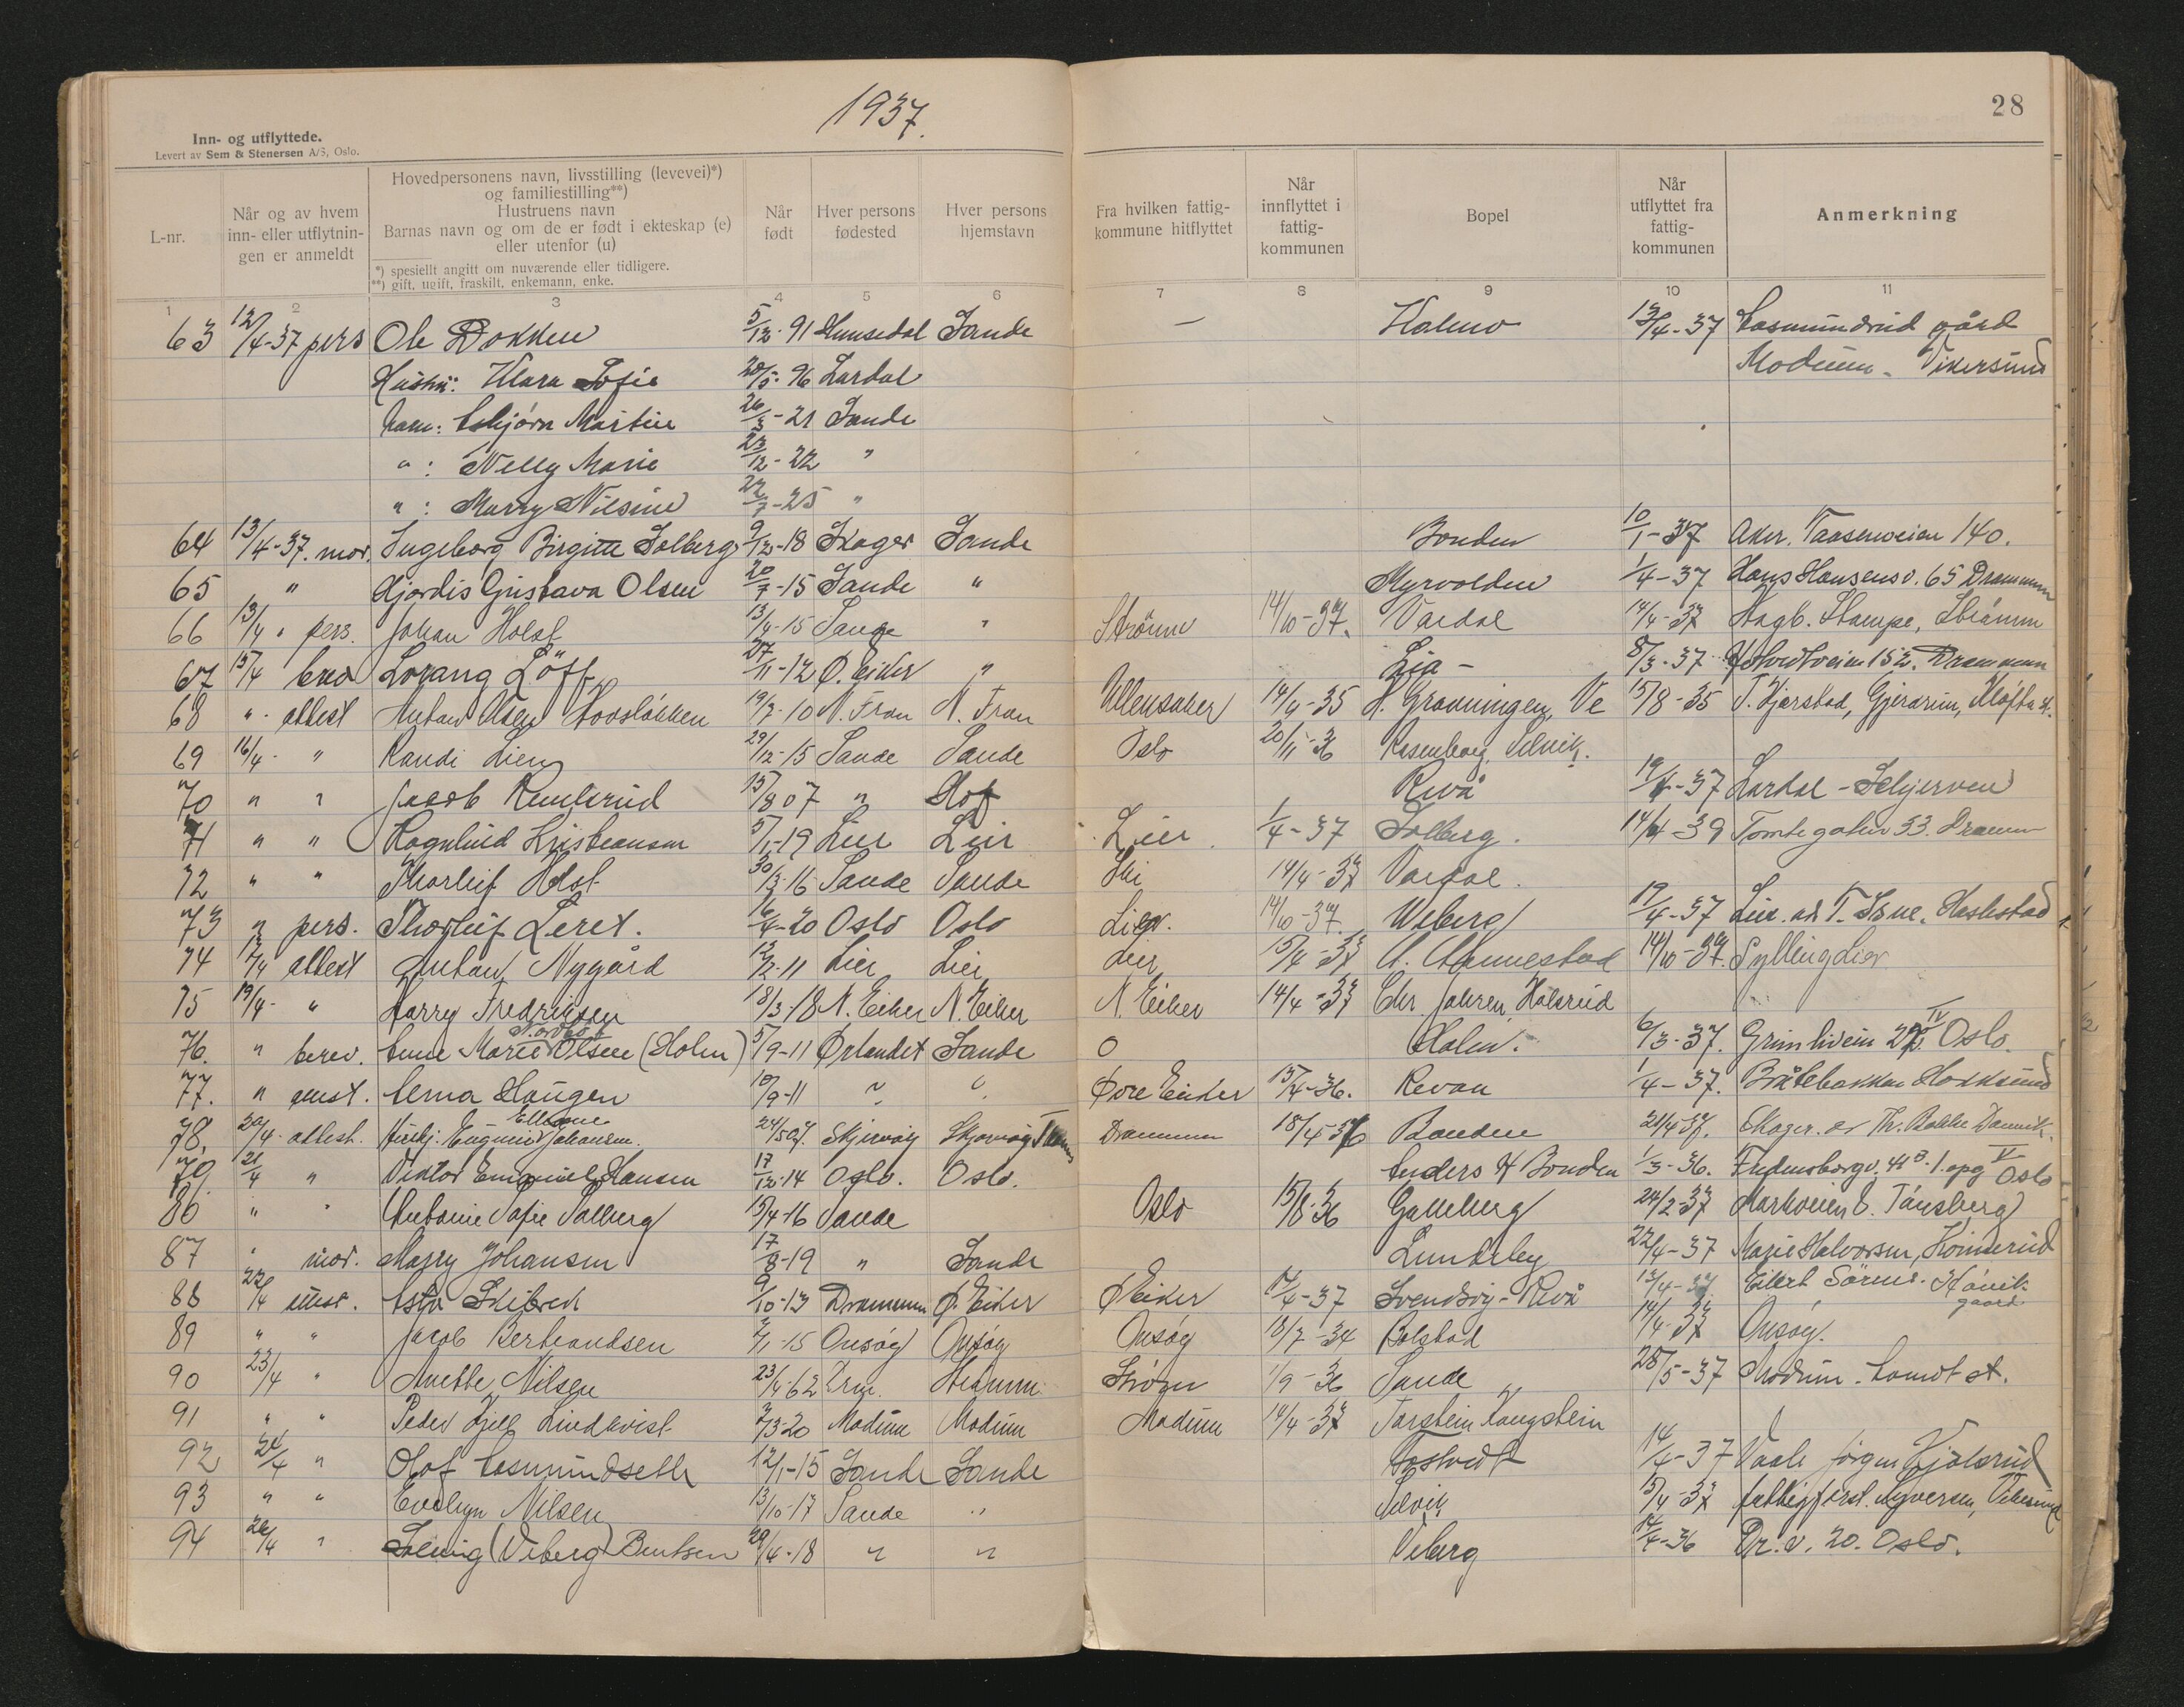 1937.
28
Inn- og utflyttede.
Levert av Sem & Stenersen A/S, Oslo.
L-nr.
Når og av hvem inn- eller utflytnin- gen er anmeldt
Hovedpersonens navn, livsstilling (levevei)*) og familiestilling**) Hustruens navn Barnas navn og om de er født i ekteskap (e) eller utenfor (u)
*) spesiellt angitt om nuværende eller tidligere.
**) gift, ugift, fraskilt, enkemann, enke.
Når født
Hver persons fødested
Hver persons hjemstavn
Fra hvilken fattig- kommune hitflyttet
Når innflyttet i fattig- kommunen
Bopel
Når utflyttet fra fattig- kommunen
Anmerkning
1 2 3 4 5 6 7 8 9 10 11
63 12/4-37 pers Ole Dokken 5/12-91 Hemsedal Sande — Holmo 13/4-37 gård
Modum - Vikersund
Hustru: Klara Sofie 20/5-96 Lardal
barn: Martin 26/3-21 Sande
" : Nelly Marie 23/12-22 "
" : Marry Nilsine 22/7-25 "
64 13/4-37. mor. Ingeborg Birgitte Solberg 9/12-18 Skoger Sande Bonden 10/1-37 Aker. Taasenveien 140.
65 " Hjørdis Gustava Olsen 20/7-15 Sande " Myrvolden 1/4-37 Hans Hansens v. 65 Drammen
66 13/4 " pers. Johan Holst 13/4-15 Sande " Strømm 14/10-37. Vardal 14/4-37 Hagb. Stampe, Strømm
67 15/4 Lorang Löff 27/11-12 Ø. Eiker " Lia - 8/3-37 152. Drammen
68 " attest Anton Olsen 19/7-10 N. Fron N. Fron Ullensaker 14/4-35 H. Gravningen, Ve 15/8-35 T. Hjerstad, Gjerdrum, Kløfta st.
69 16/4- " Randi Lien 29/12-15 Sande Sande Oslo 20/11-36 Rosenborg, Selvik.
70 " " Jacob Remlsrud 15/8 07 " Hof Revå 19/4-37 Lardal -
71 " " Ragnhild Kristiansen 5/1-19 Lier Lier Lier 1/4-37 Solberg. 14/4-39 Tomtegaten 33. Drammen
72 " " Thorleif Holst 30/3-16 Sande Sande Ski 14/4-37 Vardal.
73 " pers. Thorleif Leret. 16/4-20 Oslo Oslo Lier. 14/10-37. Weberg 19/4-37 Lier.
74 17/4 attest Anton Nygård 12/2-11 Lier Lier Lier 15/4-37 A. Hannestad 14/10-37. Sylling Lier
75 19/4- " Harry Fredriksen 18/3-18 N. Eiker N. Eiker N. Eiker 14/4-37 Chr. Johren Holsrud
76. " brev. Anne Marie Nordbøt Olsen (Holm) 5/9-11 Ørlandet Sande 0 Holm. 6/3-37. Grimliveien IV Oslo.
77. " anst. Alma Haugen 19/9-11 " " Øvre Eiker 15/4-36. Revan 1/4-37. Bråtebakken Hokksund
78, 20/4- attest. Eugenie Johansen Ellegne 24/5 07. Skjervøy Skjervøy Drammen 18/4-36 Bonden 21/4-37. Skoger.
79. 21/4 " Viktor Emanuel Hansen 17/12-14 Oslo. Oslo. Anders H Bonden 1/3-36. Fredensborgv. 1. opg V Oslo
86 " " Antonie Sofie Solberg 15/4-16 Sande Oslo 15/8-36 Galleberg 24/2-37 Markveien 6. Tønsberg
87 " mor. Marry Johansen 17/8-19 " Sande Lunderby 22/4-37 Marie Halvorsen,
88 22/4 anst. Asta 9/10-13 Drammen Ø. Eiker Ø Eiker 14/4-37 Svendsvig - Revå 13/4-37 Eilert Sörens. gaard
89 " " Jacob Bertrandsen 2/1-15 Onsøy Onsøy Onsøy 18/7-34 Bolstad 14/4-37 Onsøy.
90 23/4 " Anette Nilsen 23/4-62 Drm. Strømm 1/9-36 Sande 28/5-37 Modum. st.
91 " " Peder Kjell Lindkvist 2/3-20 Modum Modum Modum 14/4-37 Torstein Kongstein
92 24/4 " Olaf 12/1-15 Sande Sande 14/4-37 Vaale Jørgen Kjølsrud
93 " " Evelyn Nilsen 13/10-17 Sande " Selvik 15/4-37 fattigforst. Vikersund
94 26/4 " Solveig (Viberg) Bentsen 29/4-18 " " Viberg 14/4-36 Pr. v. 20. Oslo.